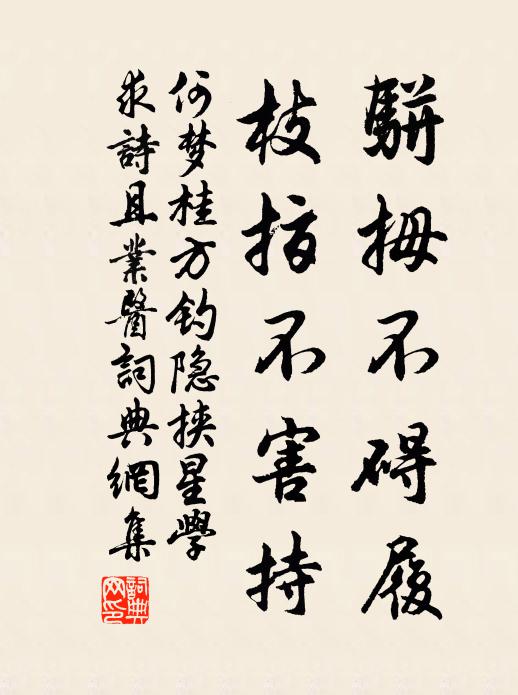 駢拇不碍履
枝指不害持
何梦桂方钓隐挟星学
求詩且業醫詞典網集
詞典網印